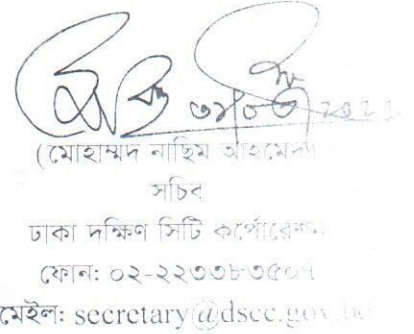 ৩১/০৩/২০২২
(মোহাম্মদ নাছিম আহমেদ)
সচিব
ঢাকা দক্ষিণ সিটি কর্পোরেশন
ফোন: ০২-২২৩৩৮৩৫০৭
মেইল: secretary@dscc.gov.bd